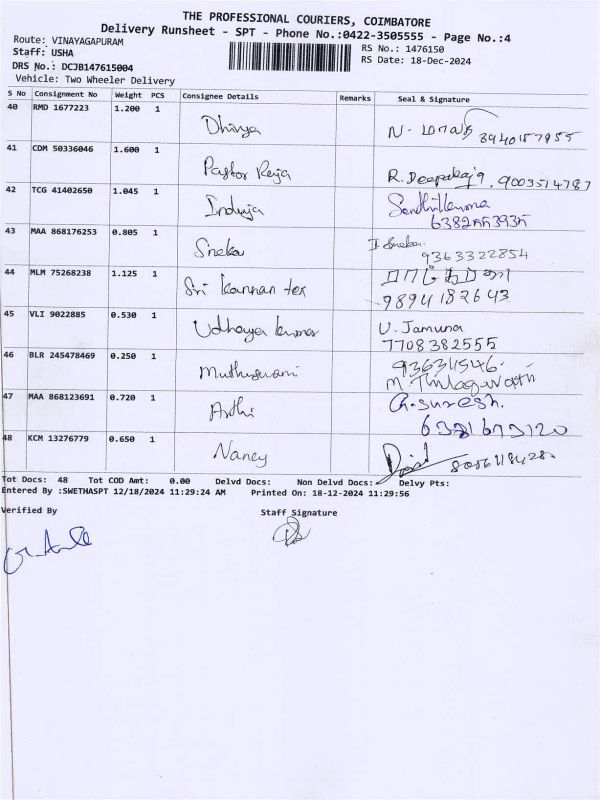 THE PROFESSIONAL COURIERS, COIMBATORE
Delivery Runsheet - SPT - Phone No.:0422-3505555 - Page No.:4
Route: VINAYAGAPURAM
RS No.: 1476150
Staff: USHA
RS Date: 18-Dec-2024
DRS No.: DCJB147615004
Vehicle: Two Wheeler Delivery
S No Consignment No Weight PCS Consignee Details Remarks Seal & Signature
40 RMD 1677223 1.200 1 Dhivya N-
41 CDM 50336046 1.600 1 Pastor R. Deepakraja, 9003514787
42 TCG 41402650 1.045 1 Induja
43 MAA 868176253 0.805 1 Sneka Sneka
9363322854
44 MLM 75268238 1.125 1 Sri kannan tex
9894182643
45 VLI 9022885 0.530 1 Udhaya kumar U. Jamuna
7708382555
46 BLR 245478469 0.250 1 Muthuswami
M.
47 MAA 868123691 0.720 1 Arthi G. Suresh.
48 KCM 13276779 0.650 1 Nancy
Tot Docs: 48 Tot COD Amt: 0.00 Delvd Docs: Non Delvd Docs: Delvy Pts:
Entered By :SWETHASPT 12/18/2024 11:29:24 AM Printed On: 18-12-2024 11:29:56
Verified By Staff Signature